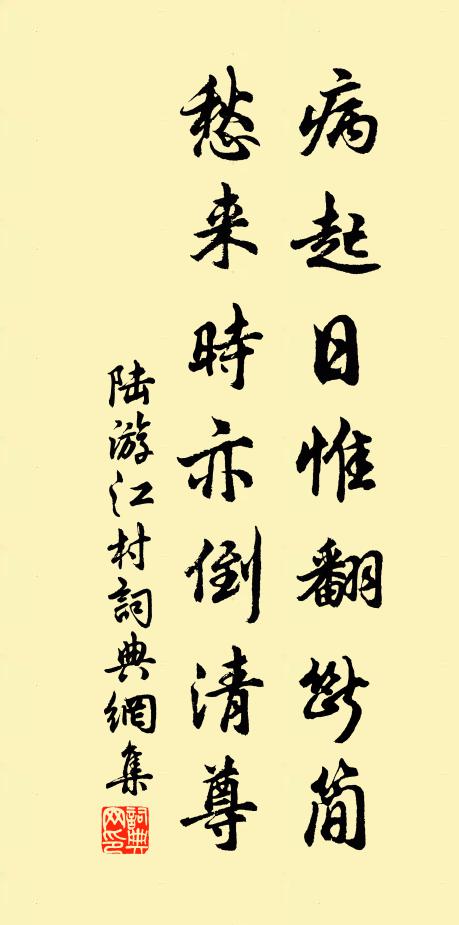 病起日惟翻断简
愁来時亦倒清尊
陆游江村詞典網集
詞典網印